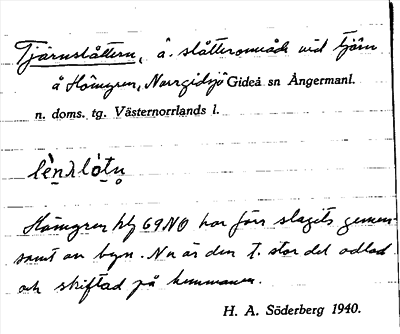 Tjärnslåttern, å. slåtterområde vid tjärn
å Hömyren, Norrgidsjö Gideå sn Ångermanl.
n. doms. tg. Västernorrlands l.
Hömyren blg 69NO har förr slagits gemen-
samt av byn. Nu är den t. stor del odlad
och skiftad på hemmanen.
H. A. Söderberg 1940.